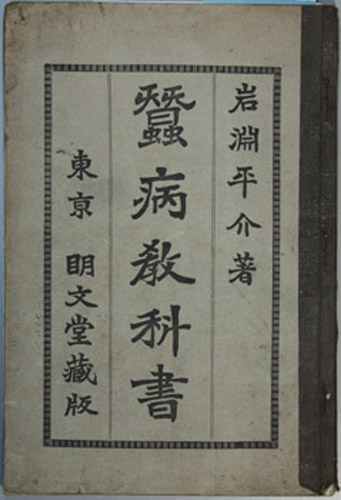 岩淵平介著
蠶病教科書
東京 明文堂蔵版